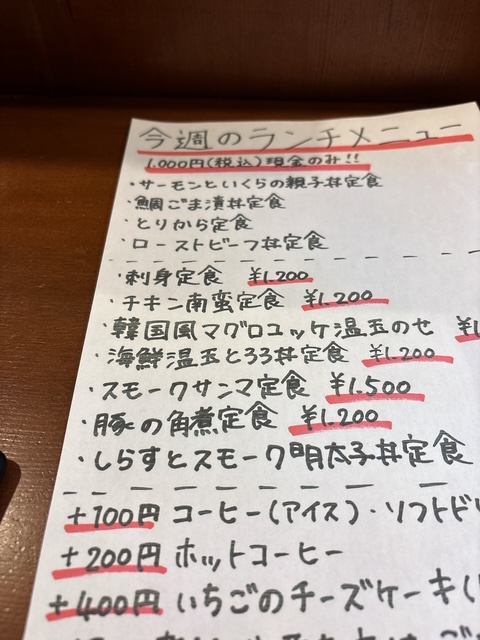 今週のランチメニュー
1,000円(税込)現金のみ!!
・サーモンといくらの親子丼定食
・鯛ごま漬丼定食
・とりから定食
・ローストビーフ丼定食
・刺身定食 ¥1,200
・チキン南蛮定食 ¥1,200
・韓国風マグロユッケ温玉のせ ¥1
・海鮮温玉とろろ丼定食 ¥1,200
・スモークサンマ定食 ¥1,500
・豚の角煮定食 ¥1,200
・しらすとスモーク明太子丼定食
+100円 コーヒー(アイス)・ソフトドリ
+200円 ホットコーヒー
+400円 いちごのチーズケーキ(